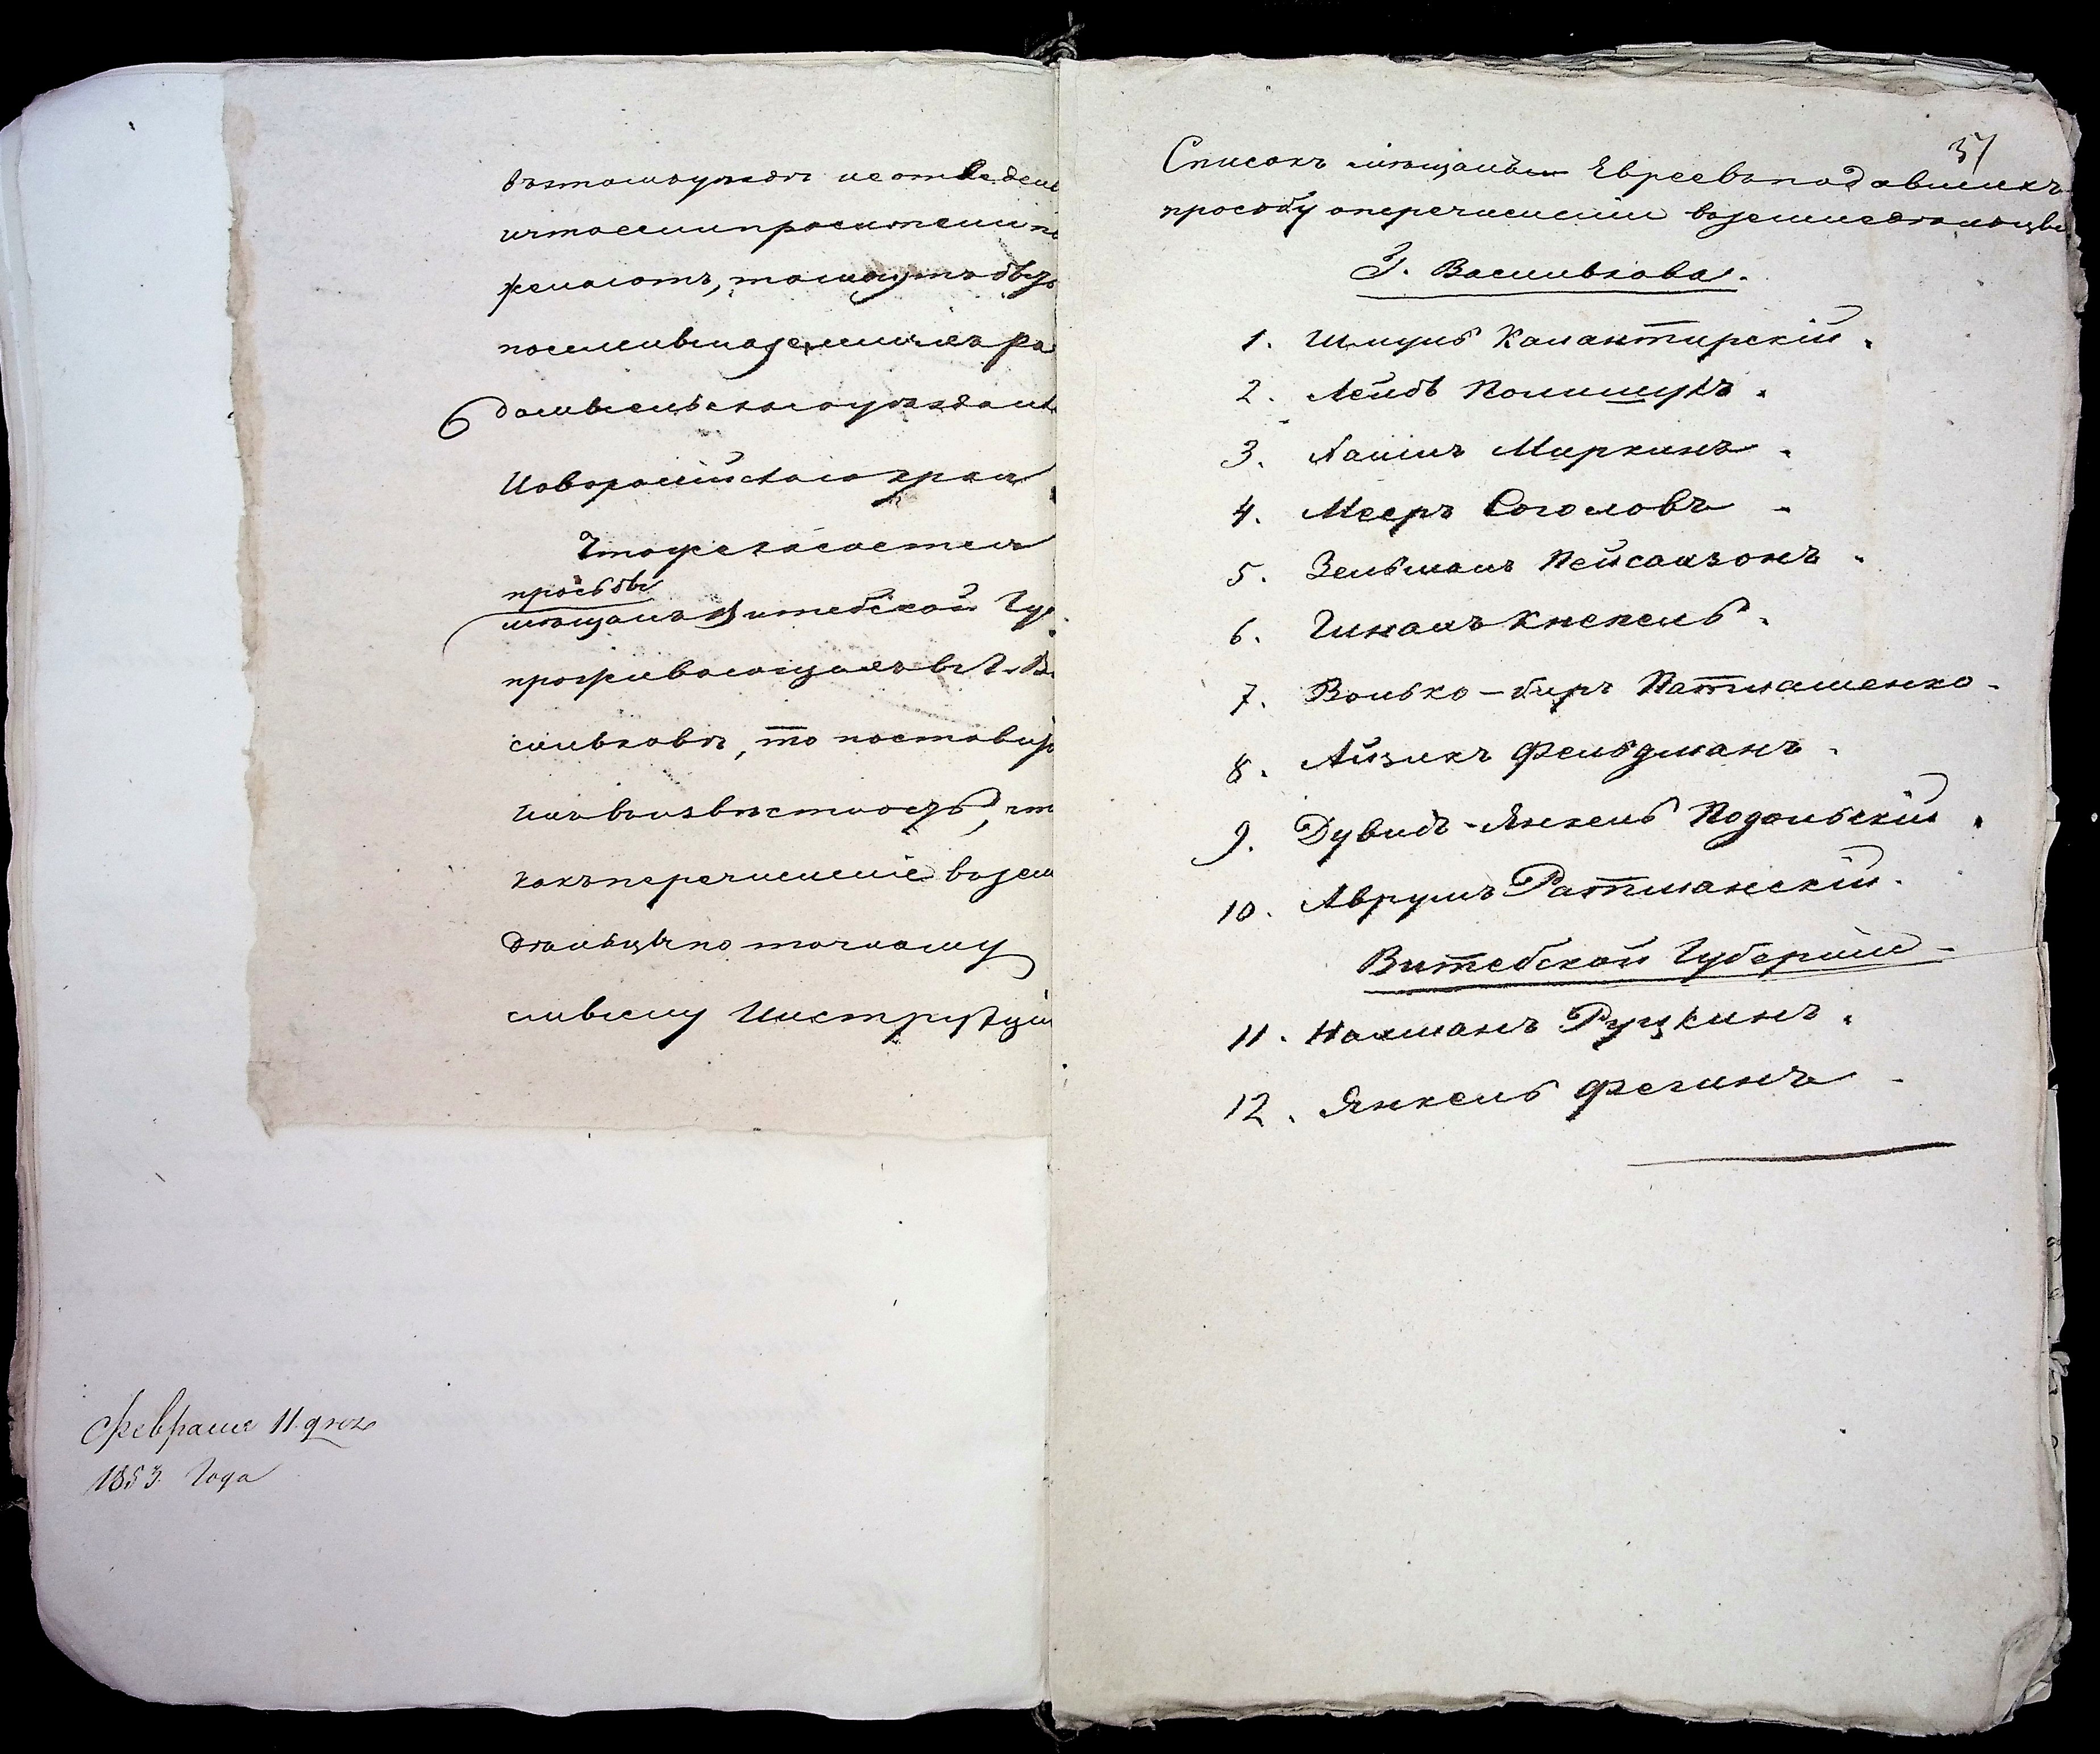 въ томъ уездѣ не отведены
и что если просители по
желаютъ, то могутъ быть
поселены на земляхъ ка
домысельскаго уезда
Новороссійскаго края
Что же касается
просьбы
мѣщанъ Витебской Гу
проживающихъ въ г. Ва
сильковѣ, то поставить
ихъ въ извѣстность, чт
какъ перечисленіе въ зем
дѣльцы по точному
смыслу Инструкціи
Февраля 11 дня
1853 Года
37
Списокъ мѣщанъ Евреевъ подавшихъ
просьбу о перечисленіи въ земледѣльцы
Г. Василькова.
1. Шмуль Калантирскій.
2. Лейбъ Полищукъ.
3. Хаимъ Миркинъ.
4. Мееръ Соголовъ
5. Зельманъ Пейсахзонъ.
6. Кнепель.
7. Волько-Биръ Патлашенко.
8. Айзикъ Фельдманъ.
9. Дувидъ-Янкель Подольскій.
10. Аврумъ Ратманскій.
Витебской Губерніи
11. Нахманъ Руцкинъ.
12. Янкель Фегинъ